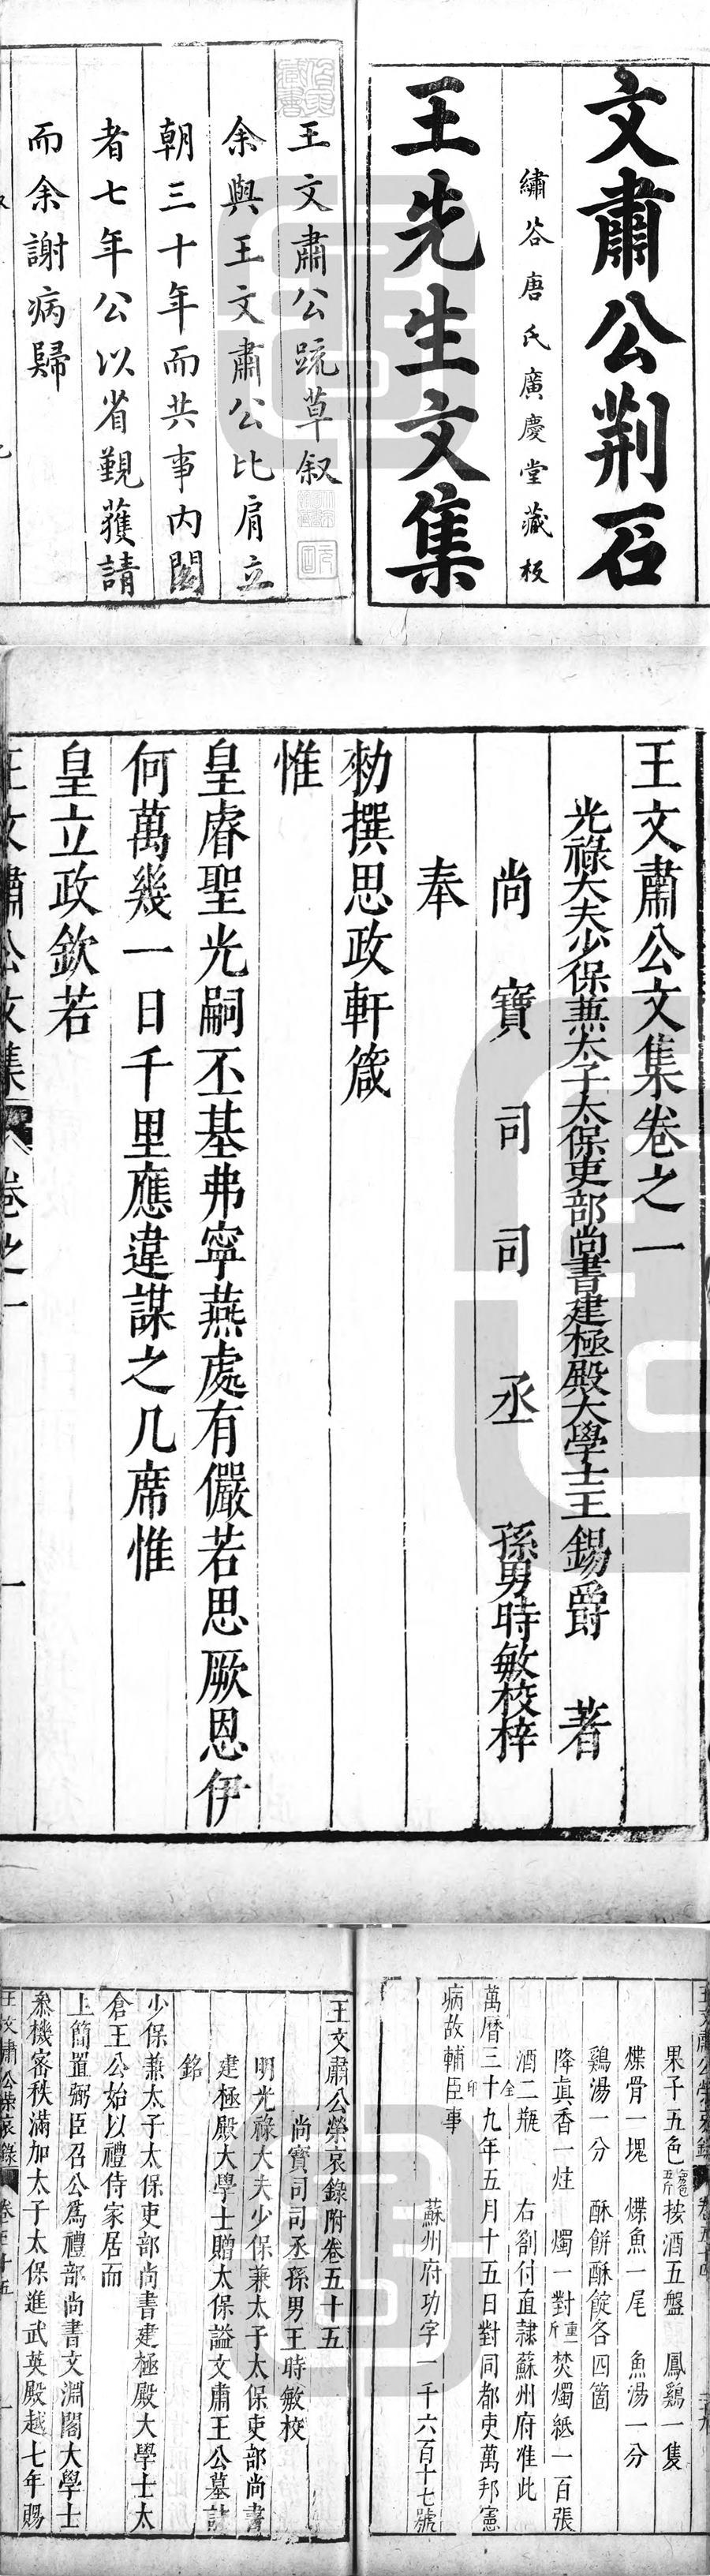 文肅公荆石
繡谷唐氏廣慶堂藏板
王先生文集
王文肅公疏草叙
余與王文肅公比肩立
朝三十年而共事内閣
者七年公以省覲獲請
而余謝病歸
王文肅公文集卷之一
光祿大夫少保兼太子太保吏部尚書建極殿大學士王錫爵 著
尚寶司司丞 孫男時敏校梓
奉
勑撰思政軒箴
惟
皇睿聖光嗣丕基弗寧燕處有儼若思厥恩伊
何萬幾一日千里應違謀之几席惟
皇立政欽若
王文肅公文集 卷之一 一
果子五色 按酒五盤 鳳鷄一隻
煠骨一塊 煠魚一尾 魚湯一分
鷄湯一分 酥餅酥餤各四箇
降眞香一炷 燭一對重一斤 焚燭紙一百張
酒二瓶 右劄付直隷蘇州府准此
萬曆三十九年五月十五日對同都吏萬邦憲
病故輔臣事
蘇州府功字一千六百十七號
王文肅公榮哀錄附卷五十五
尚寶司司丞孫男王時敏校
明光祿大夫少保兼太子太保吏部尚書
建極殿大學士贈太保謚文肅王公墓誌
銘
少保兼太子太保吏部尚書建極殿大學士太
倉王公始以禮侍家居而
上簡置弼臣召公爲禮部尚書文淵閣大學士
叅機密秩滿加太子太保進武英殿越七年賜
王文肅公榮哀錄 卷五十五 一